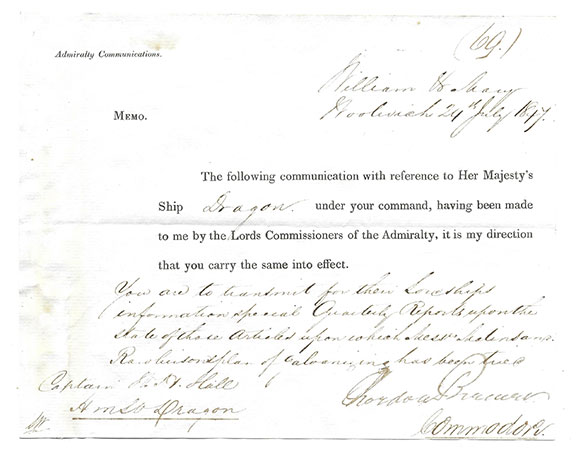 (69.)
Admiralty Communications.
William & Mary
Woolwich 24th July 1847.
MEMO.
The following communication with reference to Her Majesty's
Ship Dragon. under your command, having been made
to me by the Lords Commissioners of the Admiralty, it is my direction
that you carry the same into effect.
You are to transmit for their Lordships
information special Quarterly Reports upon the
state of those Articles upon which Messrs and
plan of Galvanizing has been tried
Captain Hall
HMS Dragon
Commodore.